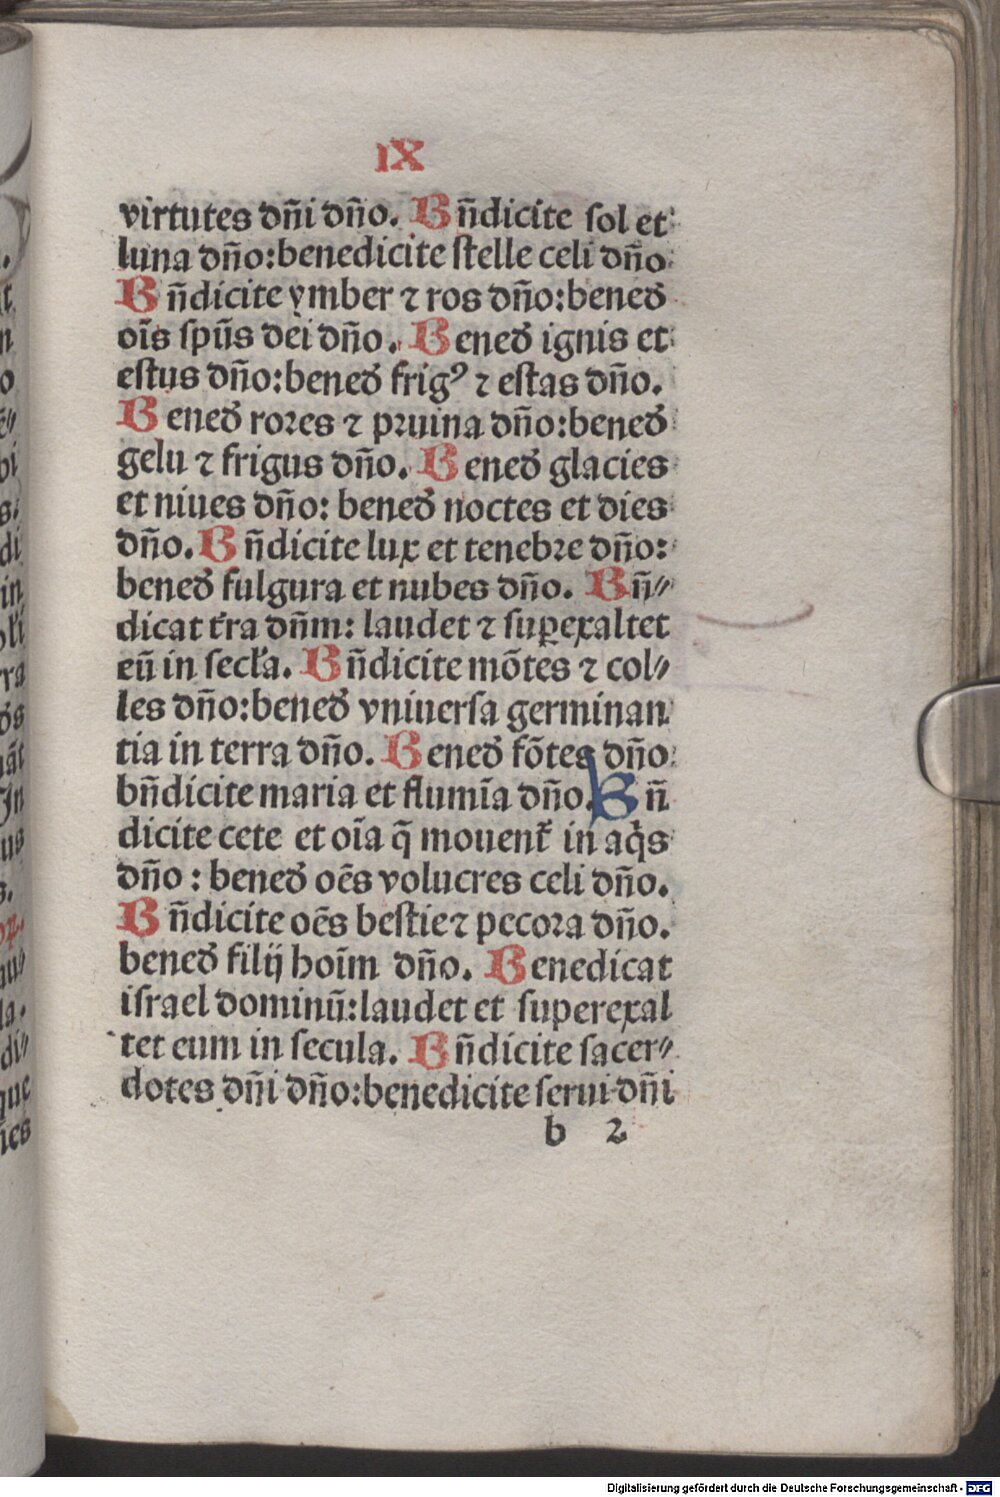 IX
virtutes dñi dño. Bñdicite sol et
luna dño:benedicite stelle celi dño
Bñdicite ymber ⁊ ros dño:bened̉
oı̄s spūs dei dño. Bened̉ ignis et
estus dño:bened̉ frigꝰ ⁊ estas dño.
Bened̉ rores ⁊ pruina dño:bened̉
gelu ⁊ frigus dño. Bened̉ glacies
et niues dño: bened̉ noctes et dies
dño. Bñdicite lux et tenebre dño:
bened̉ fulgura et nubes dño. Bñ⸗
dicat t̉ra dñm: laudet ⁊ suꝑexaltet
eū in secl̉a. Bñdicite mōtes ⁊ col⸗
les dño:bened̉ vniuersa germinan
tia in terra dño. Bened̉ fōtes dño
bñdicite maria et flumı̄a dño. Bñ
dicite cete et oı̄a q̄ mouent̉ in aq̉s
dño : bened̉ oēs volucres celi dño.
Bñdicite oēs bestie ⁊ pecora dño.
bened̉ filij hoı̄m dño. Benedicat
israel dominū:laudet et superexal
tet eum in secula. Bñdicite sacer⸗
dotes dñi dño:benedicite serui dñi
b 2
Digitalisierung gefördert durch die Deutsche Forschungsgemeinschaft - DFG